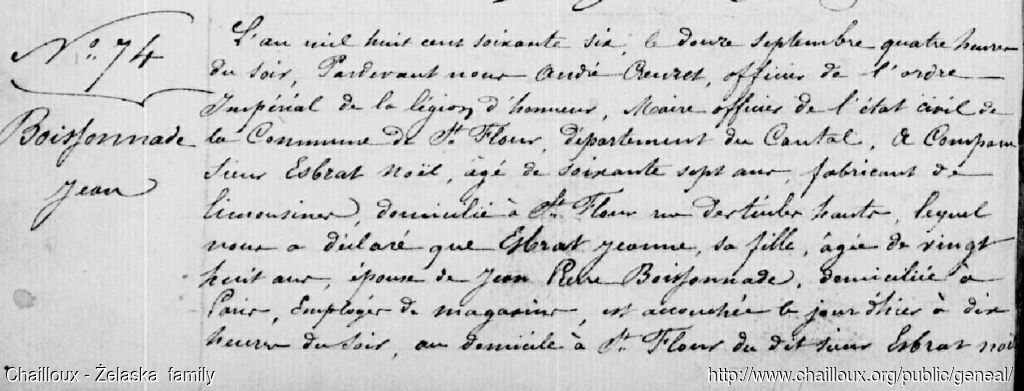 N° 74
Boissonnade
Jean
L'an mil huit cent soixante six, le douze septembre quatre heures
du soir, Pardevant nous André Creuzet, officier de l'ordre
Impérial de la légion d'honneur, Maire officier de l'état civil de
la Commune de St Flour, département du Cantal, a Comparu
sieur Esbrat Noël, âgé de soixante sept ans, fabricant de
limousines, domicilié à St Flour rue des hauts, lequel
nous a déclaré que Esbrat Jeanne, sa fille, âgée de vingt
huit ans, épouse de Jean Pierre Boissonnade, domiciliée à
Paris, Employés de magasins, est accouchée le jour d'hier à dix
heures du soir, au domicile à St Flour du dit sieur Esbrat noël
Chailloux - Żelaska family
http://www.chailloux.org/public/geneal/